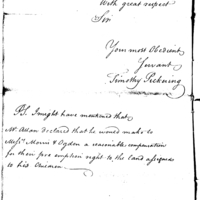 With great respect
Sir
Your most Obedient
Servant
Timothy Pickering
P.S. I might have mentioned that
Mr. Allan declared that he would make to
Messrs. Morris & Ogden a reasonable compensation
for their pre emption right to the land assigned
to his Children